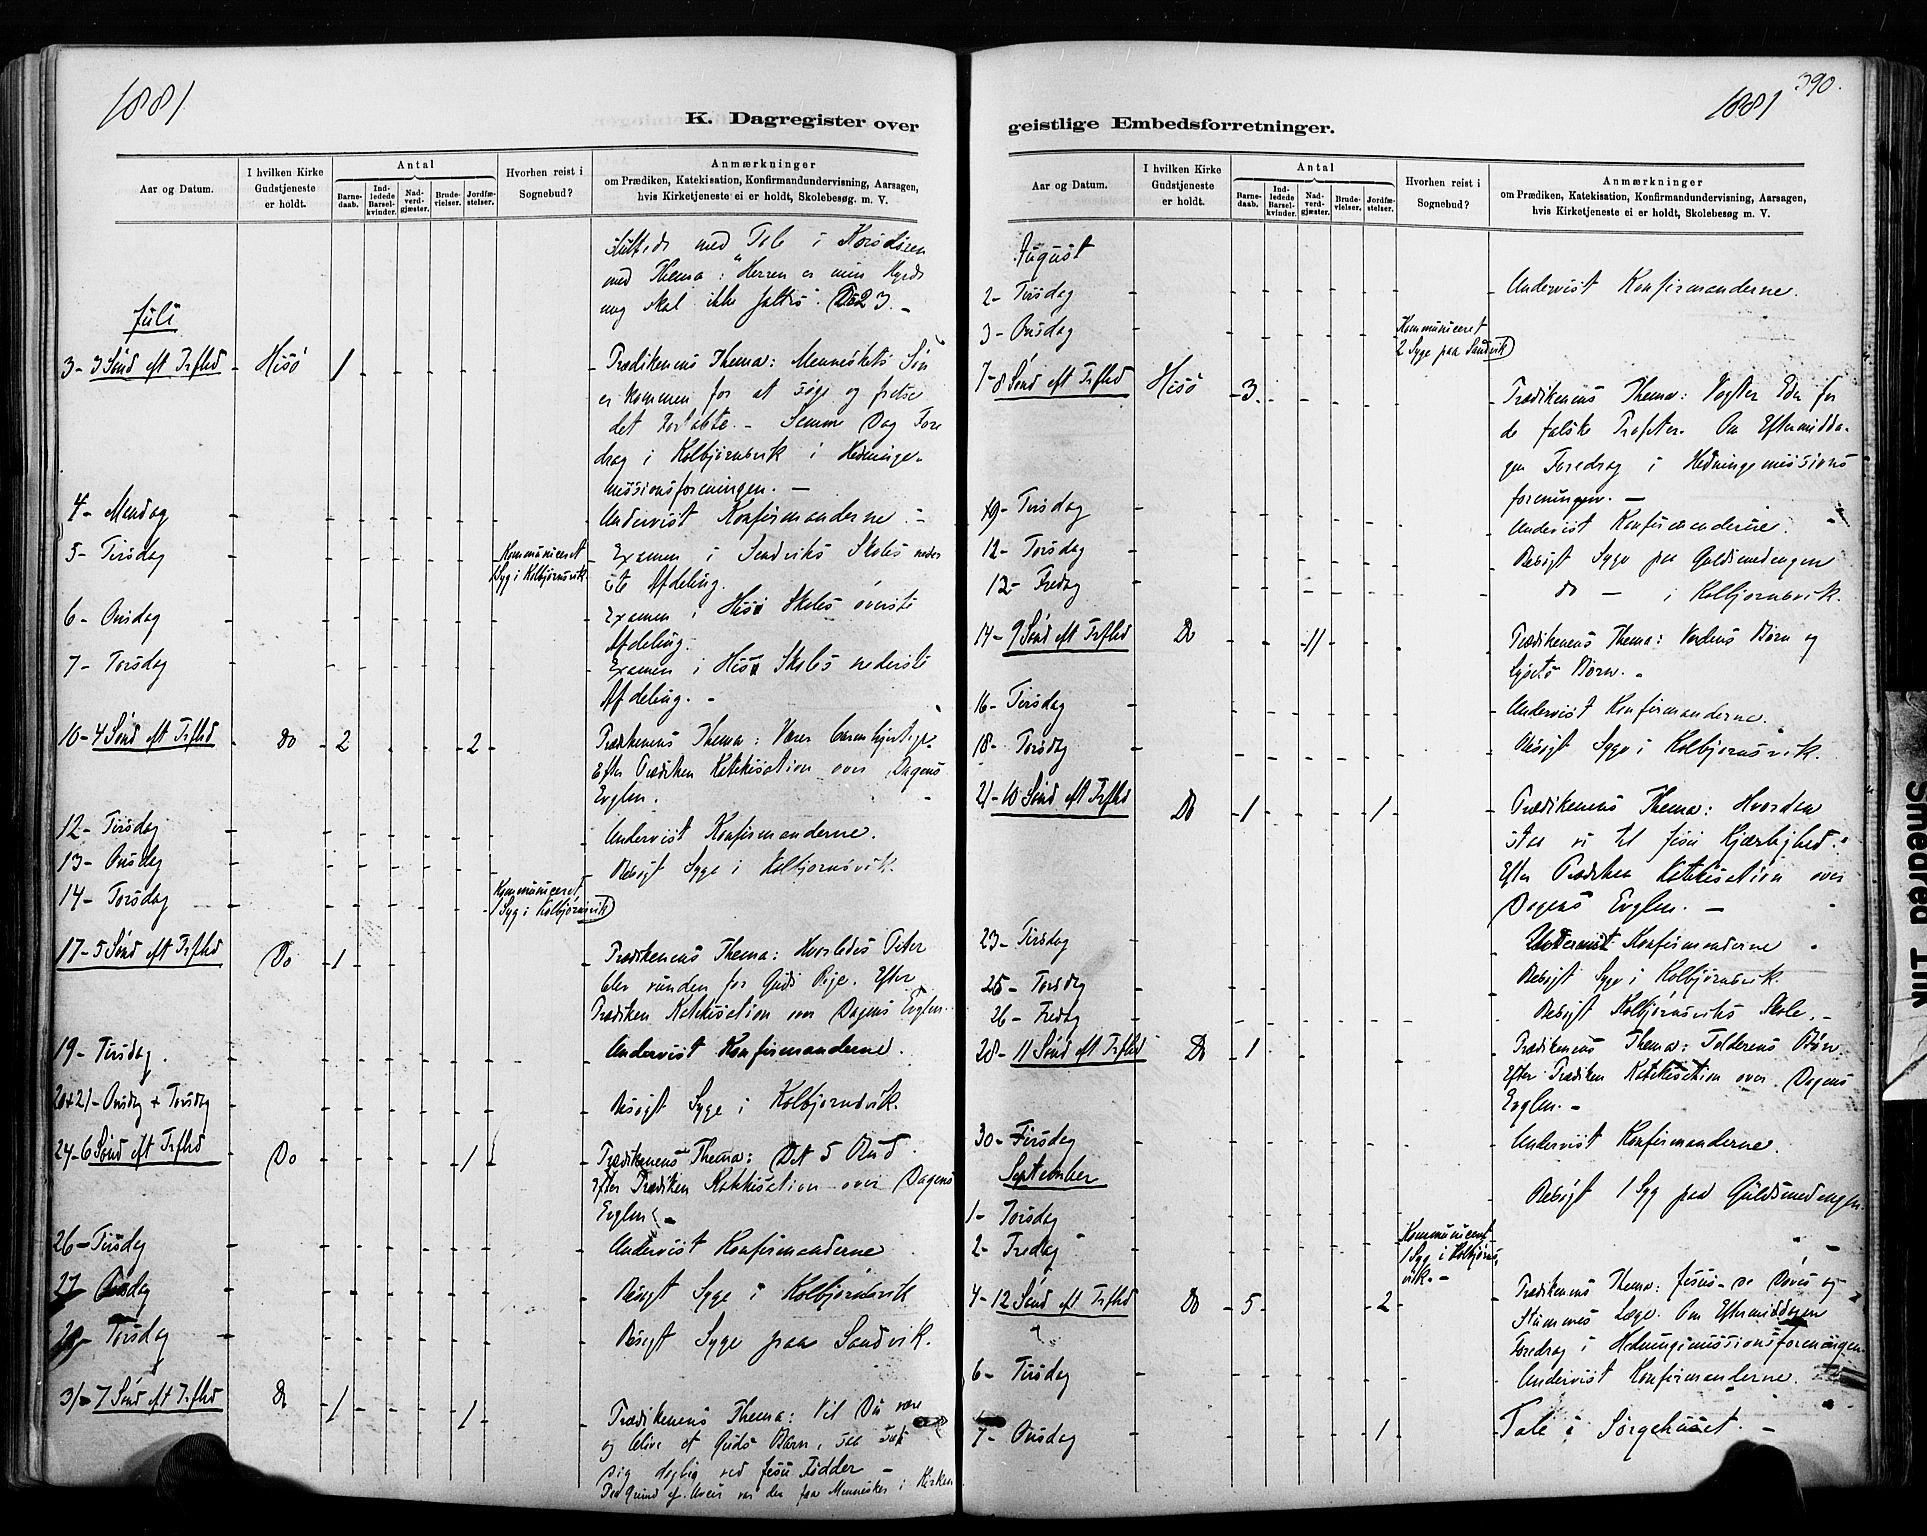 1881
K. Dagregister over
Aar og Datum.
I hvilken Kirke Gudstjeneste er holdt.
Antal
Barnedaab.
Indledede Barselkvinder.
Nadverdgjæster.
Brudevielser.
Jordfæstelser.
Hvorhen reist i Sognebud?
Anmærkninger
om Prædiken, Katekisation, Konfirmandundervisning, Aarsagen,
hvis Kirketjeneste ei er holdt, Skolebesøg m. V.
med Tale i Korsdøren
med Thema: "Herren er min Hyrde
mig skal ikke fattes". Ds 23. -
Juli
3 - 3 Sønd eft Trfhd - Hisø 1 Prædikenens Thema: Menneskets Søn
er kommen for at søge og frelse
det Fortabte. - Samme Dag Fore
drag i Kolbjørnsvik i Hedninge-
missionsforeningen. -
4 - Mandag Undervist Konfirmanderne. -
5 - Tirsdag Kommuniceret Syg i Kolbjørnsvik Examen i Sandviks Skoles neder
ste Afdeling.
6 - Onsdag Examen i Hisø Skoles øverste
Afdeling.
7 - Torsdag Examen i Hisø Skoles nederste
Afdeling. -
10 - 4 Sønd eft Trfhd Do 2 2 Prædikenens Thema: Værer barmhjertige.
Efter Prædiken Katekisation over Dagens
Evglm.
12 - Tirsdag Undervist Konfirmanderne.
13 - Onsdag Besøgt Syge i Kolbjørnsvik.
14 - Torsdag Kommuniceret 1 Syg i Kolbjørnsvik
17 - 5 Sønd eft Trfhd Do 1 Prædikenens Thema: Hvorledes Peter
blev vunden for Guds Rige. Efter
Prædiken Katekisation over Dagens Evglm.
19 - Tirsdag. Undervist Konfirmanderne.
20+21 - Onsdag + Torsdag Besøgt Syge i Kolbjørnsvik.
24 - 6 Sønd eft Trfhd Do 1 Prædikenens Thema: Det 5 Bud.
Efter Prædiken Katekisation over Dagens
Evglm. -
26 - Tirsdag Undervist Konfirmanderne
27 - Onsdag Besøgt Syge i Kolbjørnsvik
28 - Torsdag Besøgt Syge paa Sandvik.
31 - 7 Sønd eft Trfhd Do 1 1 Prædikenens Thema: Vil Du være
og blive et Guds Barn, saa sæt
Dig daglig ved Jesu Fødder -
var der faa Mennesker i Kirken
390.
1881
geistlige Embedsforretninger.
Aar og Datum.
I hvilken Kirke Gudstjeneste er holdt.
Antal
Barnedaab.
Indledede Barselkvinder.
Nadverdgjæster.
Brudevielser.
Jordfæstelser.
Hvorhen reist i Sognebud?
Anmærkninger
om Prædiken, Katekisation, Konfirmandundervisning, Aarsagen,
hvis Kirketjeneste ei er holdt, Skolebesøg m. V.
August
2 - Tirsdag Undervist Konfirmanderne.
3 - Onsdag Kommuniceret 2 Syge paa Sandvik
7 - 8 Sønd eft Trfhd Hisø 3 Prædikenens Thema: Vogter Eder for
de falske Profeter. Om Eftermidda-
gen Foredrag i Hedningemissions
foreningen. -
9 - Tirsdag Undervist Konfirmanderne.
12 - Torsdag Besøgt Syge paa Guldsmedengen
12 - Fredag do - i Kolbjørnsvik.
14 - 9 Sønd eft Trfhd Do 11 Prædikenens Thema: Verdens Børn og
Lysets Børn. -
16 - Tirsdag Undervist Konfirmanderne.
18 - Torsdag Besøgt Syge i Kolbjørnsvik.
21 - 10 Sønd eft Trfhd Do 1 1 Prædikenens Thema: Hvordan
staa vi til Jesu Kjærlighed.
Efter Prædiken Katekisation over
Dagens Evglm. -
23 - Tirsdag Undervist Konfirmanderne
25 - Torsdag Besøgt Syge i Kolbjørnsvik.
26 - Fredag Besøgt Kolbjørnsviks Skole. -
28 - 11 Sønd eft Trfhd Do 1 Prædikenens Thema: Tolderens Bøn.
Efter Prædiken Katekisation over Dagens
Evglm. -
30 - Tirsdag Undervist Konfirmanderne.
September
1 - Torsdag Besøgt 1 Syg paa Guldsmedengen.
2 - Fredag Kommuniceret 1 Syg i Kolbjørnsvik. -
4 - 12 Sønd eft Trfhd Do 5 2 Prædikenens Thema: Jesus - de Døves og
Stummes Læge. Om Eftermiddagen
Foredrag i Hedningemissionsforeningen.
6 - Tirsdag Undervist Konfirmanderne.
7 - Onsdag 1 Tale i Sørgehuset. -